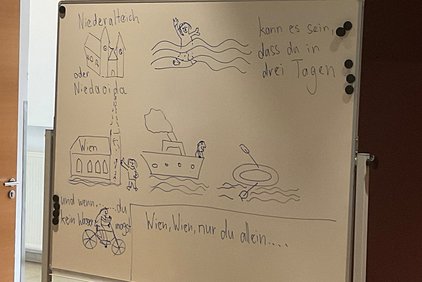 Niederalteich
oder
Niedaoida
kann es sein,
dass da in
drei Tagen
Wien
und wenn ... du
kein Wasser magst
Wien, Wien, nur du allein....